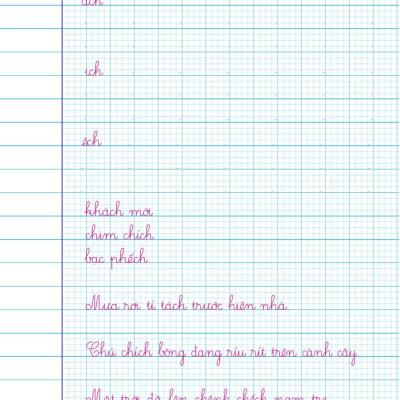 ach
ich
êch
khách mời
chim chích
bạc phếch
Mưa rơi tí tách trước hiên nhà.
Chú chích bông đang ríu rít trên cành cây.
Mặt trời đã lên chênh chếch ngọn tre